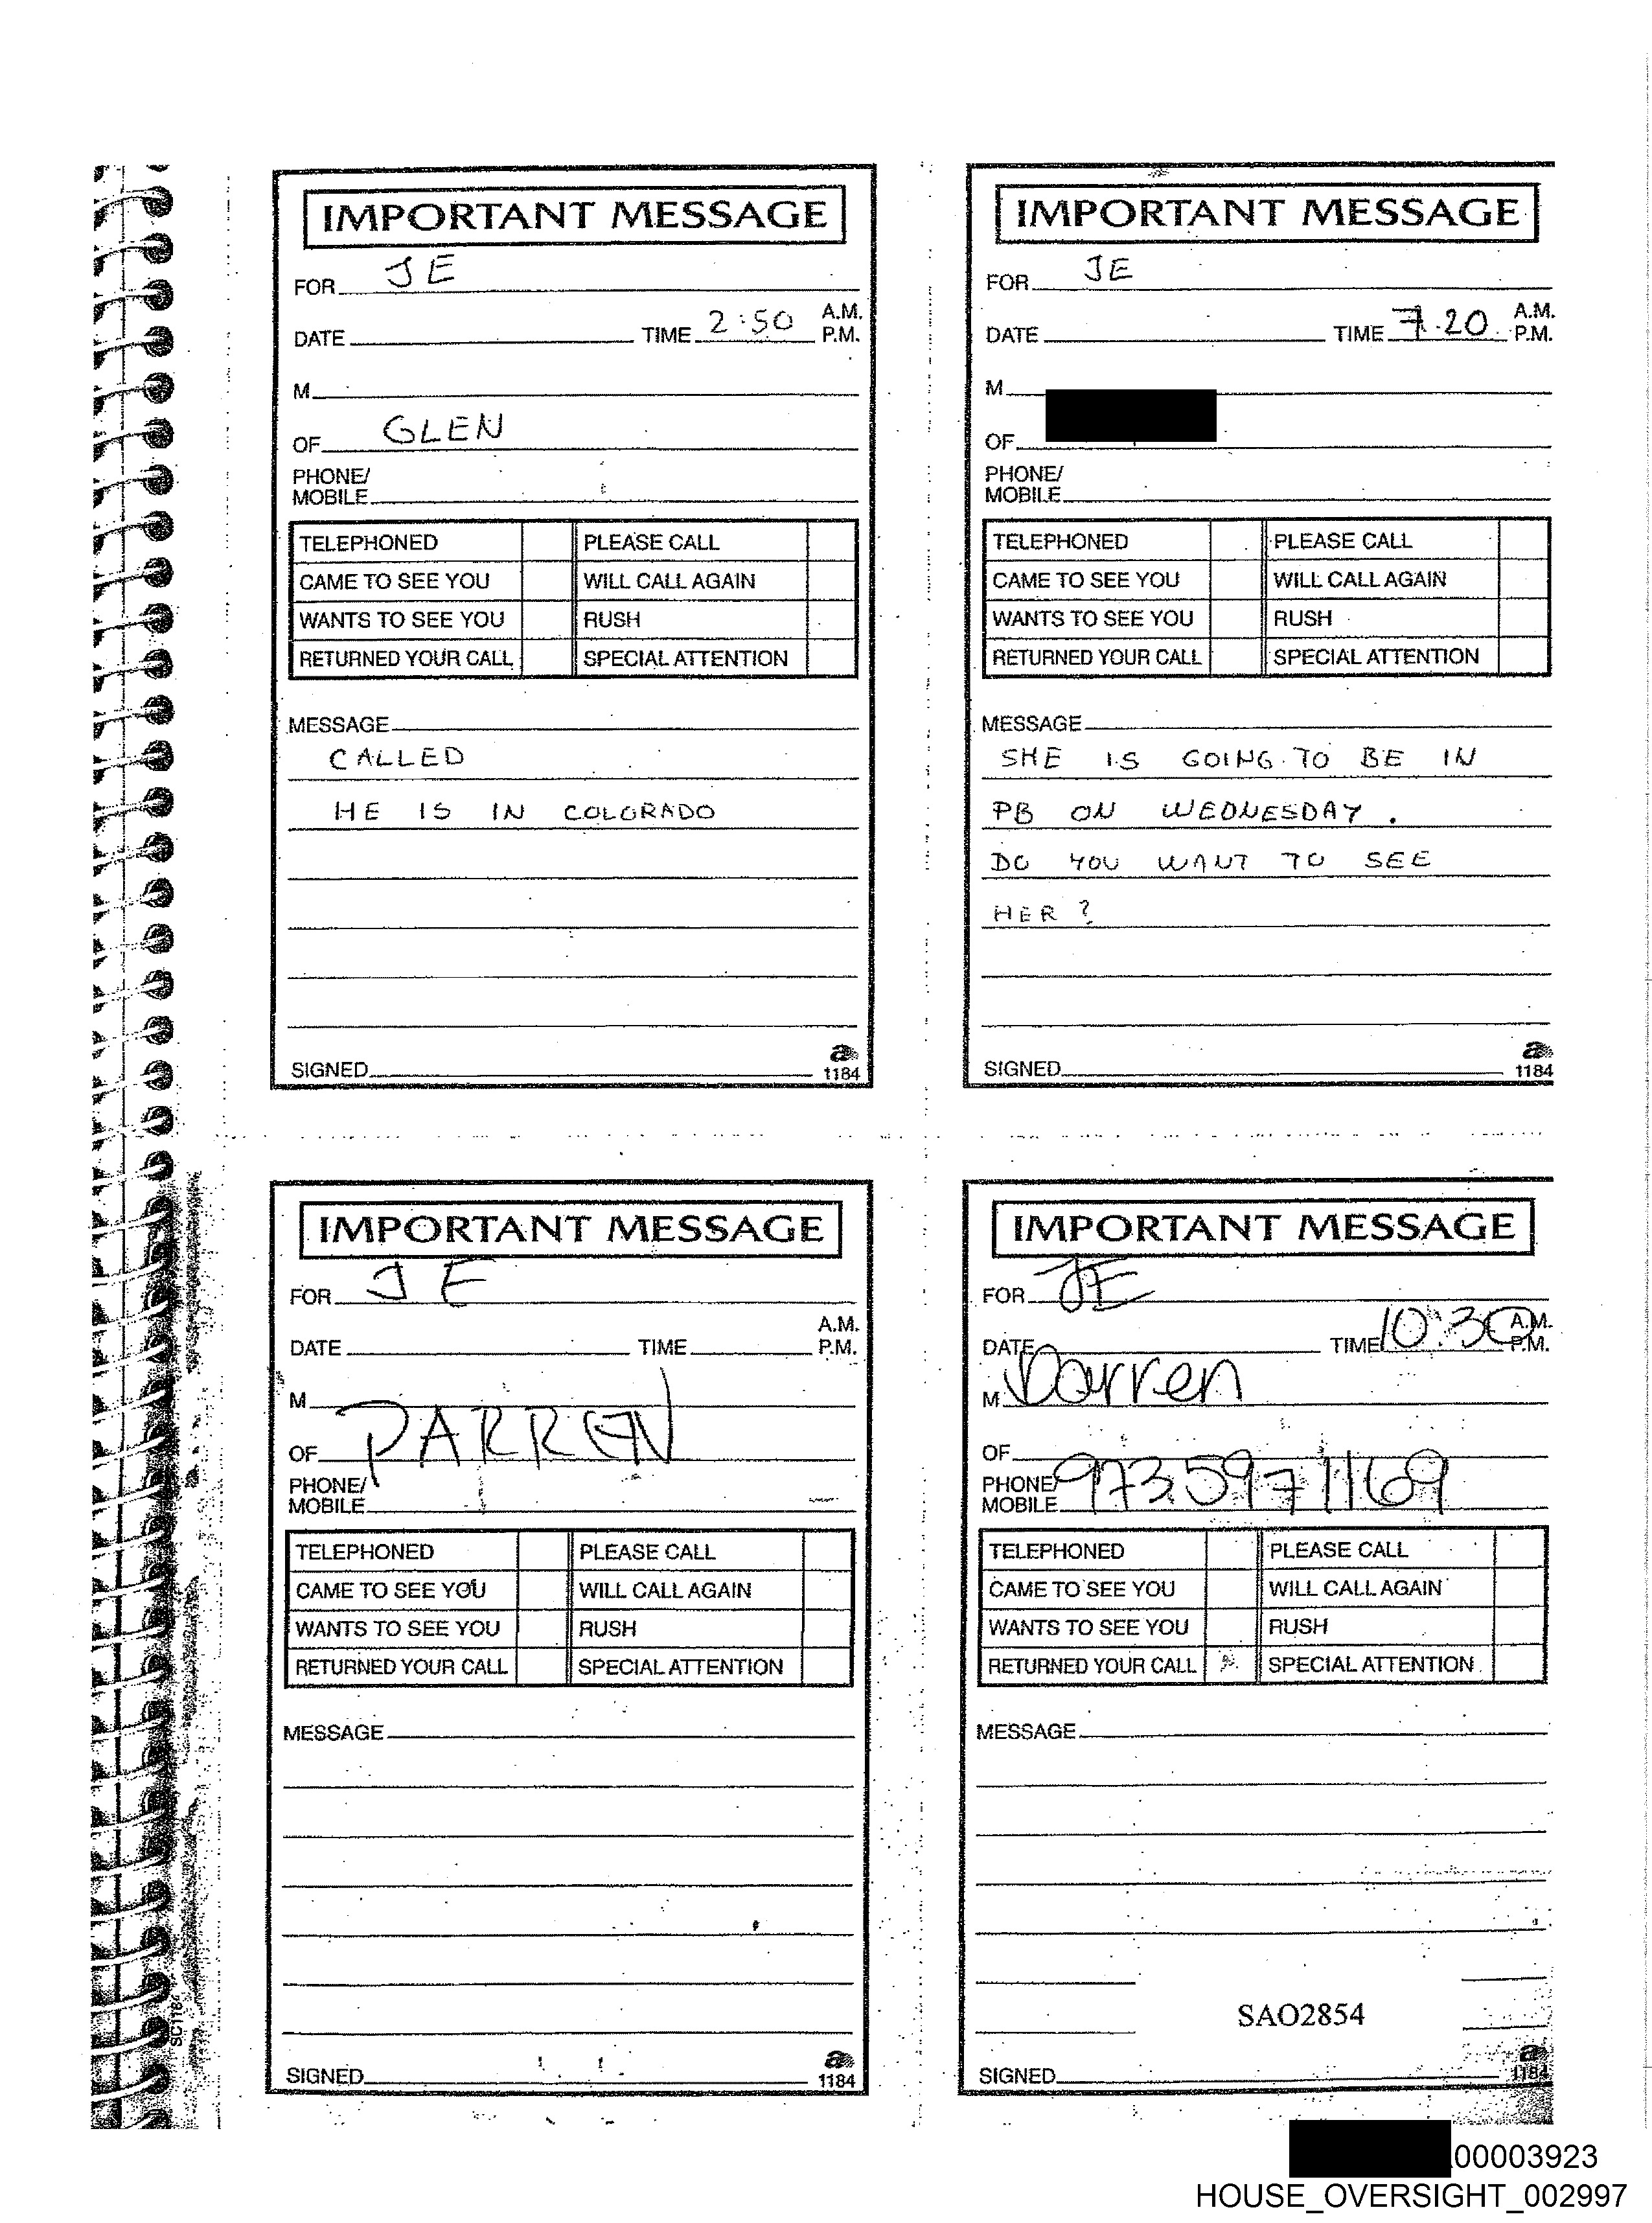 IMPORTANT MESSAGE
FOR JE
DATE TIME 2:50 A.M. P.M.
M
OF GLEN
PHONE/
MOBILE
TELEPHONED PLEASE CALL
CAME TO SEE YOU WILL CALL AGAIN
WANTS TO SEE YOU RUSH
RETURNED YOUR CALL SPECIAL ATTENTION
MESSAGE
CALLED
HE IS IN COLORADO
SIGNED
a
1184
IMPORTANT MESSAGE
FOR JE
DATE TIME 7.20 A.M. P.M.
M
OF
PHONE/
MOBILE
TELEPHONED PLEASE CALL
CAME TO SEE YOU WILL CALL AGAIN
WANTS TO SEE YOU RUSH
RETURNED YOUR CALL SPECIAL ATTENTION
MESSAGE
SHE IS GOING TO BE IN
PB ON WEDNESDAY.
DO YOU WANT TO SEE
HER?
SIGNED
a
1184
IMPORTANT MESSAGE
FOR JE
DATE TIME A.M. P.M.
M
OF DARREN
PHONE/
MOBILE
TELEPHONED PLEASE CALL
CAME TO SEE YOU WILL CALL AGAIN
WANTS TO SEE YOU RUSH
RETURNED YOUR CALL SPECIAL ATTENTION
MESSAGE
SIGNED
a
1184
SC1184
IMPORTANT MESSAGE
FOR JE
DATE TIME 10:30 A.M. P.M.
M Darren
OF
PHONE/ 973 597 1169
MOBILE
TELEPHONED PLEASE CALL
CAME TO SEE YOU WILL CALL AGAIN
WANTS TO SEE YOU RUSH
RETURNED YOUR CALL SPECIAL ATTENTION
MESSAGE
SAO2854
SIGNED
a
1184
00003923
HOUSE_OVERSIGHT_002997